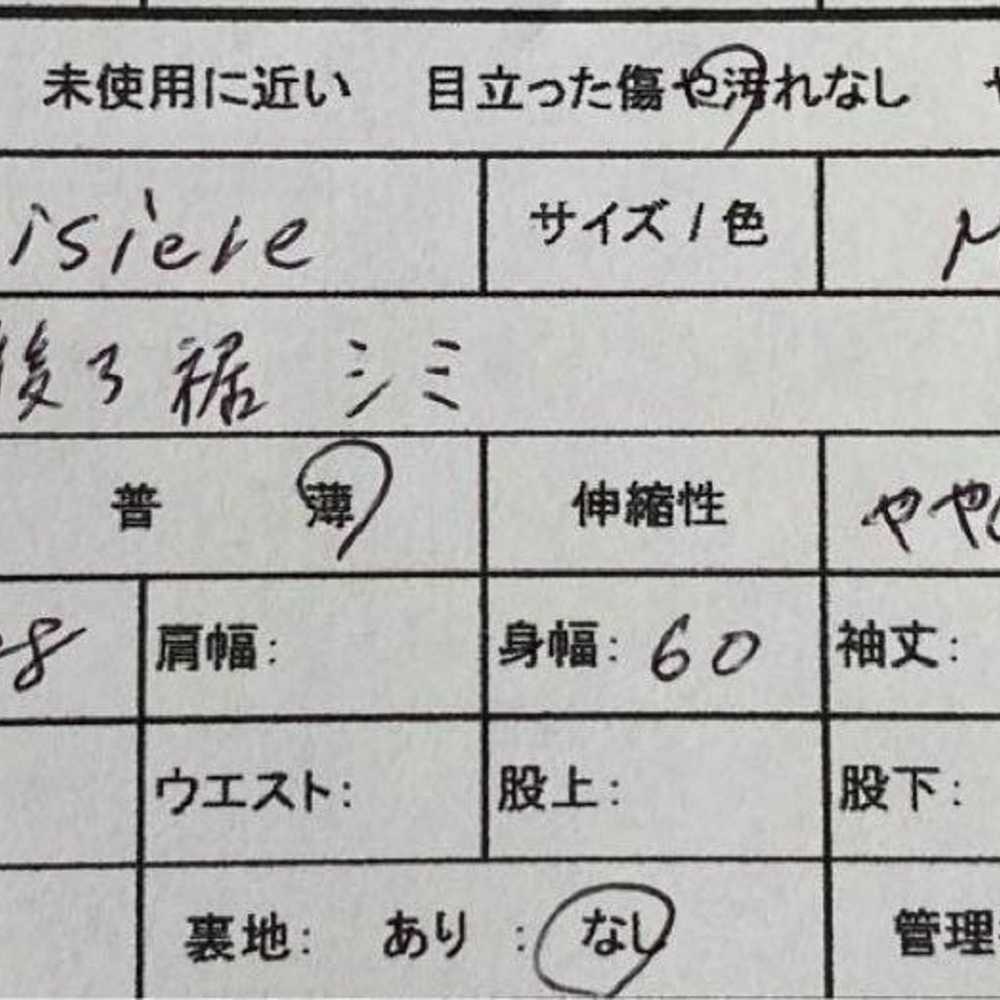 未使用に近い 目立った傷や汚れなし
isiere サイズ / 色 M
後ろ裾 シミ
普 薄 伸縮性 やや
8 肩幅: 身幅: 60 袖丈:
ウエスト: 股上: 股下:
裏地: あり : なし 管理